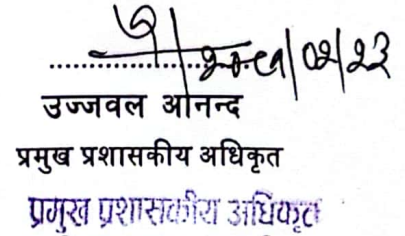 २०८१/०२/२३
उज्जवल आनन्द
प्रमुख प्रशासकीय अधिकृत
प्रमुख प्रशासकीय अधिकृत